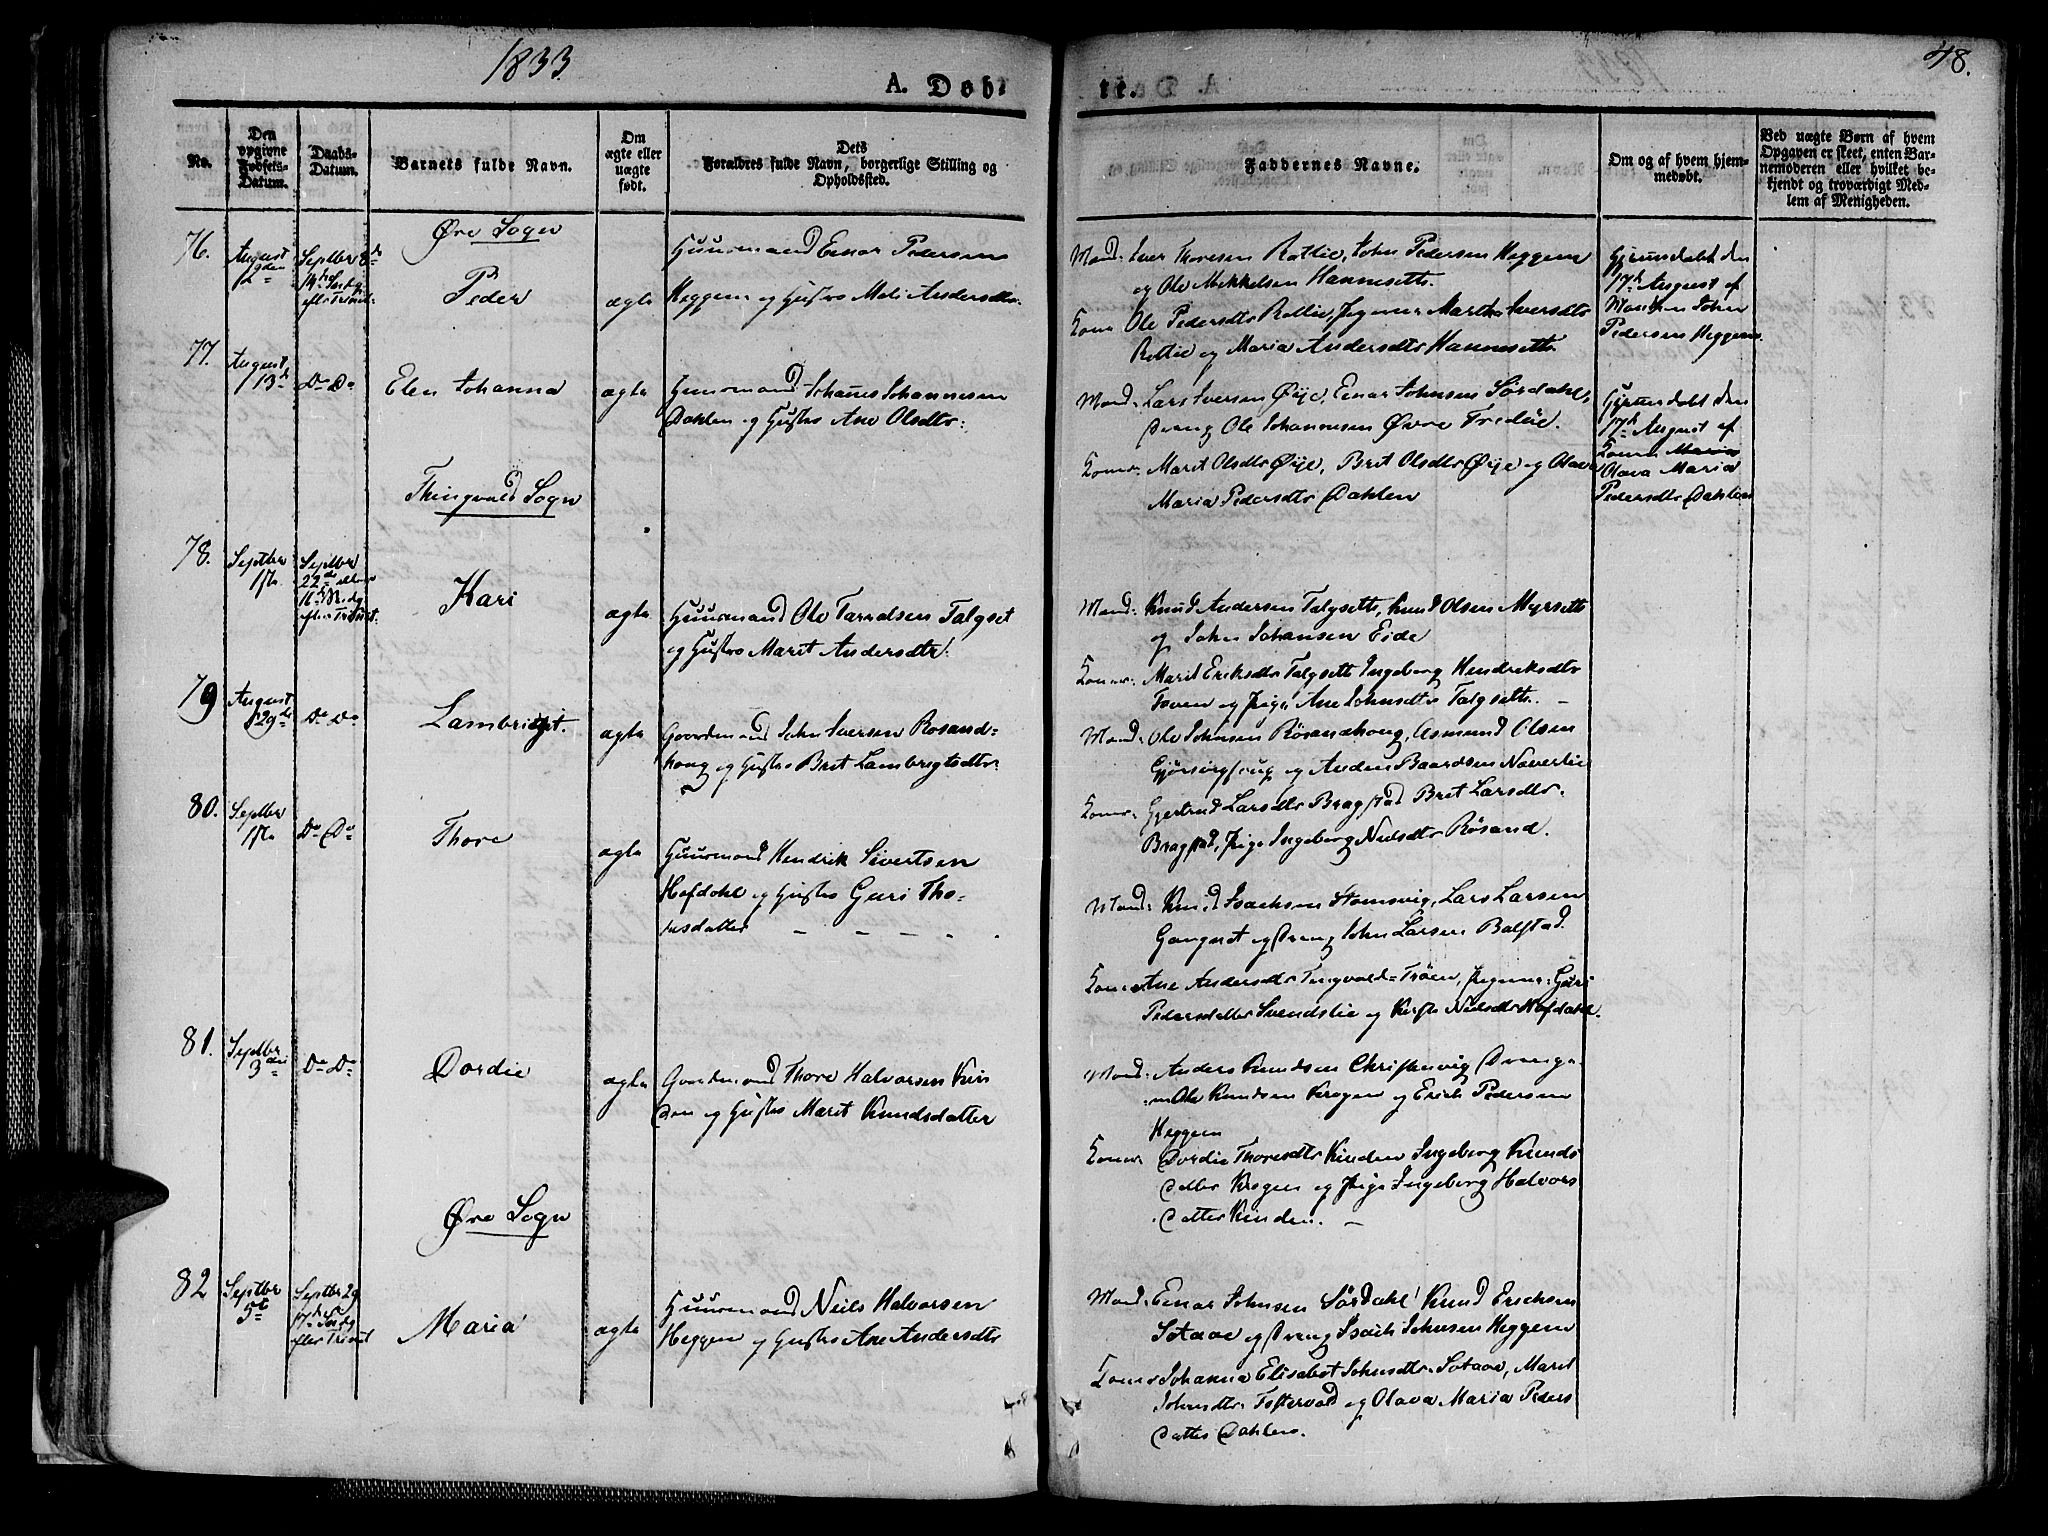 1833.
A. Døbte.
48.
No.
Den opgivne Fødsels-Datum.
Daabs-Datum.
Barnets fulde Navn.
Om ægte eller uægte født.
Dets Forældres fulde Navn, borgerlige Stilling og Opholdssted.
Faddernes Navne.
Om og af hvem hjemmedøbt.
Ved uægte Børn af hvem Opgaven er skeet, enten Barnemoderen eller hvilket bekjendt og troværdigt Medlem af Menigheden.
Øre Sogn
76.
August
Septbr 8de
14de Sndg
efter Trinit:
Peder
ægte
Huusmand Einar Pedersen
Heggem og Hustro Mali Andersdtr:
Mænd: Iver Thoresen Rottie, John Pedersen Heggem
og Ole Mikkelsen Hannesett.
Koner Pedersdtr Rottie, Marthe Iversdtr
Rottie og Maria Andersdtr Hannesett.
Hjemmedøbt den
17de August af
John
Pedersen Heggem
77.
August
13de
Do Do
Elen Johanna
ægte
Huusmand Johannesen
Dahlen og Hustro Ane Olsdtr:
Mænd: Lars Iversen Øye, Einar Johnsen Sørdahl,
Dreng Ole Johannesen Øvre Fredlie.
Koner: Marit Olsdtr Øye, Brit Olsdtr Øye og Olava
Maria Pedersdtr Dahlen
Hjemmedøbt den
17de August af
Olava Maria
Pedersdtr Dahlen
Thingvold Sogn
78.
Septbr
1ste
Septbr
22de
16de
efter Trinit.
Kari
ægte
Huusmand Ole Talgset
og Hustro Marit Andersdtr.
Mænd: Knud Andersen Talgsett, Knud Olsen Myrsett
og John Johansen Eide
Koner: Marit Eriksdtr Talgsett Ingeborg Hendriksdtr
og Pige Ane Johnsdtr Talgsett. –
79
August
29de
Do Do
Lambrigt.
ægte
Gaardmand John Iversen Rosand=
houg og Hustro Brit Lambrigtsdtr:
Mænd: Ole Johnsen Rosandhoug, Asmund Olsen
og Anders Baardsen Naverlie
Koner: Gjertrud Larsdtr Bragstad Brit Larsdtr.
Bragstad, Pige Ingeborg Nielsdtr Rosand.
80.
Septbr
1ste
Do Do
Thore
ægte
Huusmand Hendrik Sivertsen
Hofdahl og Hustro Guri Tho-
resdatter
Mænd: Knud Isachsen Stomsvig, Lars Larsen
Gangset og Dreng John Larsen Balstad.
Koner Ane Andersdtr Tingvold=Trøen, Pigerne: Guri
Pedersdatter Svendslie og Nielsdtr Hofdahl.
81.
Septbr
3die
Do Do
Dordie
ægte
Gaardmand Thore Halvorsen Kin
den og Hustro Marit Knudsdatter
Mænd: Anders Knudsen Christenvig Drenge-
ne Ole Knudsen Krogen og Erich Pedersen
Heggem
Koner Dordie Thoresdtr Kinden Ingeborg Knuds
datter Krogen og Pige Ingeborg Halvors
datter Kinden. –
Øre Sogn
82
Septbr
5te
Septbr 29
17de Sndg
efter Trinit
Maria
ægte
Huusmand Neils Halvorsen
Heggem og Hustro Ane Andersdtr
Mænd: Einar Johnsen Sørdahl Knud Erichsen
Sotaae og Dreng Isach Johnsen Heggem
Koner Johanna Elisabet Johnsdtr Sotaae, Marit
Johnsdtr Fostervold og Olava Maria Peders
datter Dahlen.